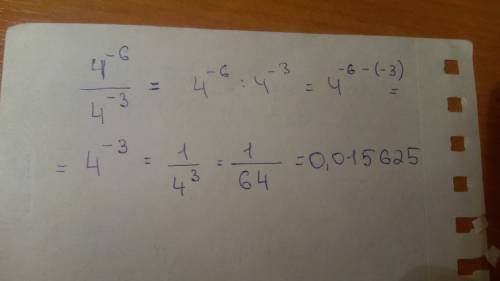 4⁻⁶/4⁻³ = 4⁻⁶ : 4⁻³ = 4⁻⁶⁻⁽⁻³⁾ =
= 4⁻³ = 1/4³ = 1/64 = 0,015625